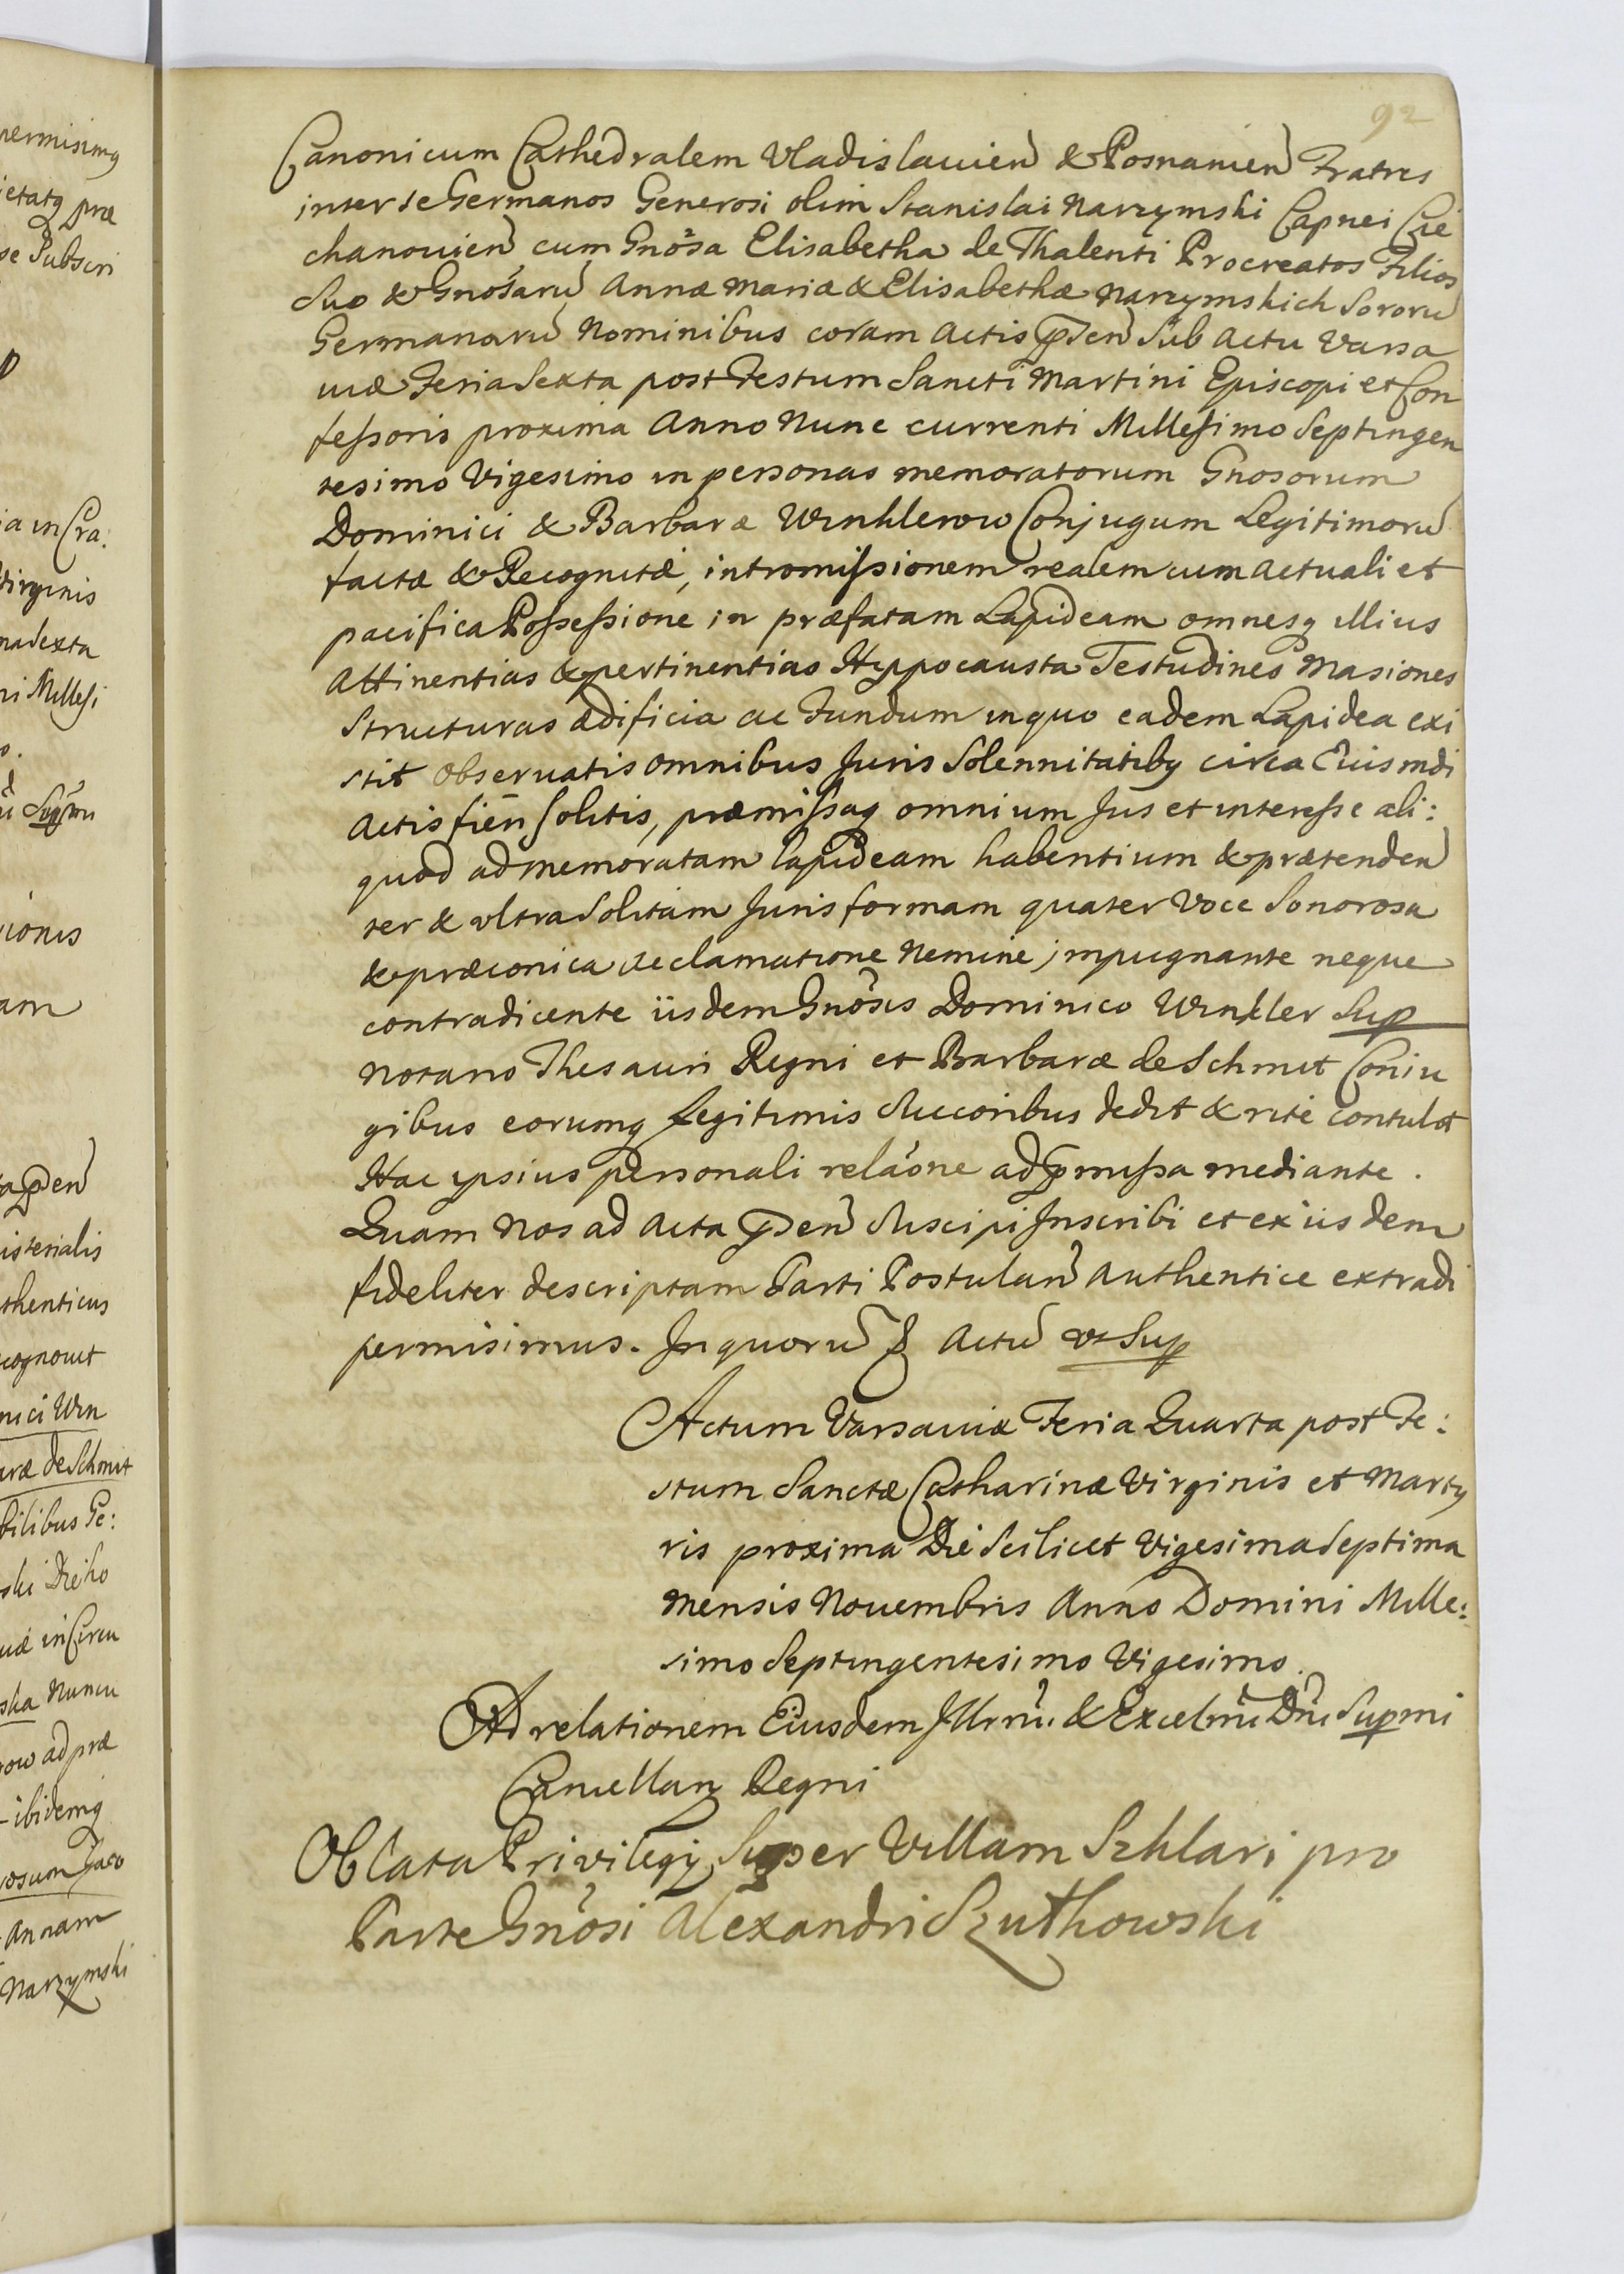 92
Canonicum Cathedralem Vladislauien & Posnanien Fratres
inter se Germanos Generosi olim Stanislai Narzymski Capnei Cie
chanouien cum Gnosa Elisabetha de Thalenti Procreatos Filios
Suo & Gnosarū Annæ Mariæ & Elisabethæ Narzymskich Sororū
Germanarū Nominibus coram Actis pñten Sub Actu Varsa
uiæ Feria Sexta post Festum Sancti Martini Episcopi et Con
feſsoris proxima Anno Nunc currenti Milleſimo Septingen
tesimo Vigesimo in personas memoratorum Gnosorum
Dominici & Barbaræ Winklerow Conjugum Legitimorū
factæ & Recognitæ, intromiſsionem realem cum actuali et
pacifica Poſseſsione in præfatam Lapideam omnesq illius
Attinentias & pertinentias Hyppocausta Testudines Masiones
Structuras ædificia ac Fundum in quo eadem Lapidea exi
stit observatis omnibus Juris Solennitatibq circa Eiusmdi
Actis fien solitis, præmiſsaq omnium Jus et intereſse ali:
quod ad memoratam lapideam habentium & prætenden
ter & ultra solitam Juris formam quater Voce Sonorosa
& præconica acclamatione Nemine impugnante neque
contradicente iisdem Gnosis Dominico Winkler Sup
Notario Thesauri Regni et Barbaræ de Schmit Coniu
gibus eorumq Legitimis Succoribus dedit & rite contulit
Hac ipsius personali relãone ad pmiſsa mediante.
Quam Nos ad Acta pñten Suscipi Inscribi et ex iisdem
fideliter descriptam Parti Postulan Authentice extradi
permisimus. In quorū & Actū ut Sup
Actum Varsauiæ Feria Quarta post Fe:
stum Sanctæ Catharinæ Virginis et Marty
ris proxima Die Scilicet Vigesima Septima
Mensis Nouembris Anno Domini Mille:
simo Septingentesimo Vigesimo.
Ad relationem Eiusdem Illrmi. & Excelmi Dni Supmi
Cancellarij Regni
Oblata Privilegij Super Villam Szklari pro
Parte Gnosi Alexandri Szutkowski